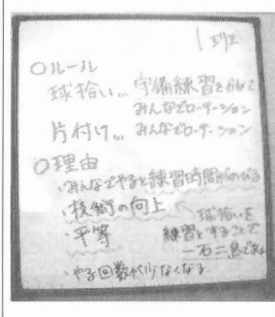 1班
○ルール
球拾い… 守備練習をかねて
みんなでローテーション
片付け… みんなでローテーション
○理由
・みんなでやると練習時間がのびる
・技術の向上
・平等
球拾いを
練習とすることで
一石二鳥である
・やる回数が少なくなる